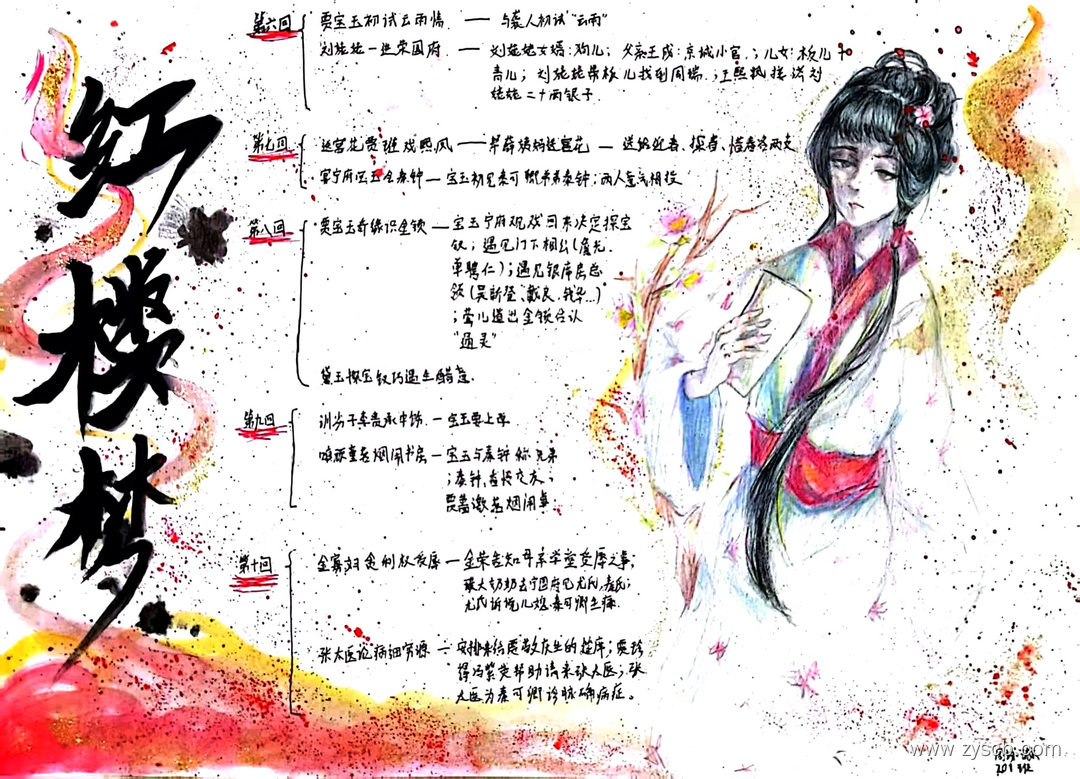 红楼梦
第六回
贾宝玉初试云雨情 — 与袭人初试“云雨”
刘姥姥一进荣国府 — 刘姥姥女婿:狗儿; 父亲王成:京城小官.;儿女:板儿
青儿; 刘姥姥带板儿找到周瑞.;王熙凤接济刘
姥姥二十两银子.
第七回
送宫花贾琏戏熙凤 — 薛姨妈送宫花 — 送给迎春、探春、惜春各两支
宴宁府宝玉会秦钟 — 宝玉初见秦可卿弟弟秦钟;两人意气相投
第八回
贾宝玉奇缘识金锁 — 宝玉宁府观戏回来决定探宝
钗;遇见门下相公(詹光.
单聘仁);遇见银库房总
领(吴新登、戴良.钱华...)
;莺儿道出金锁
“通灵”
黛玉探宝钗巧遇生醋意.
第九回
训劣子李贵承申饬. — 宝玉要上学
嗔顽童茗烟闹书房 — 宝玉与秦钟称兄弟
;秦钟,香怜交友.
贾蔷激茗烟闹事.
第十回
金寡妇贪利权受辱 — 金荣告知母亲学堂受辱之事;
璜大奶奶去宁国府见尤氏
尤氏诉说儿媳秦可卿生病.
张太医论病细穷源 — 安排来给贾敬庆生的
得冯紫英帮助请来张太医;张
太医为秦可卿诊脉确病症。
www.zyscb.com
201班